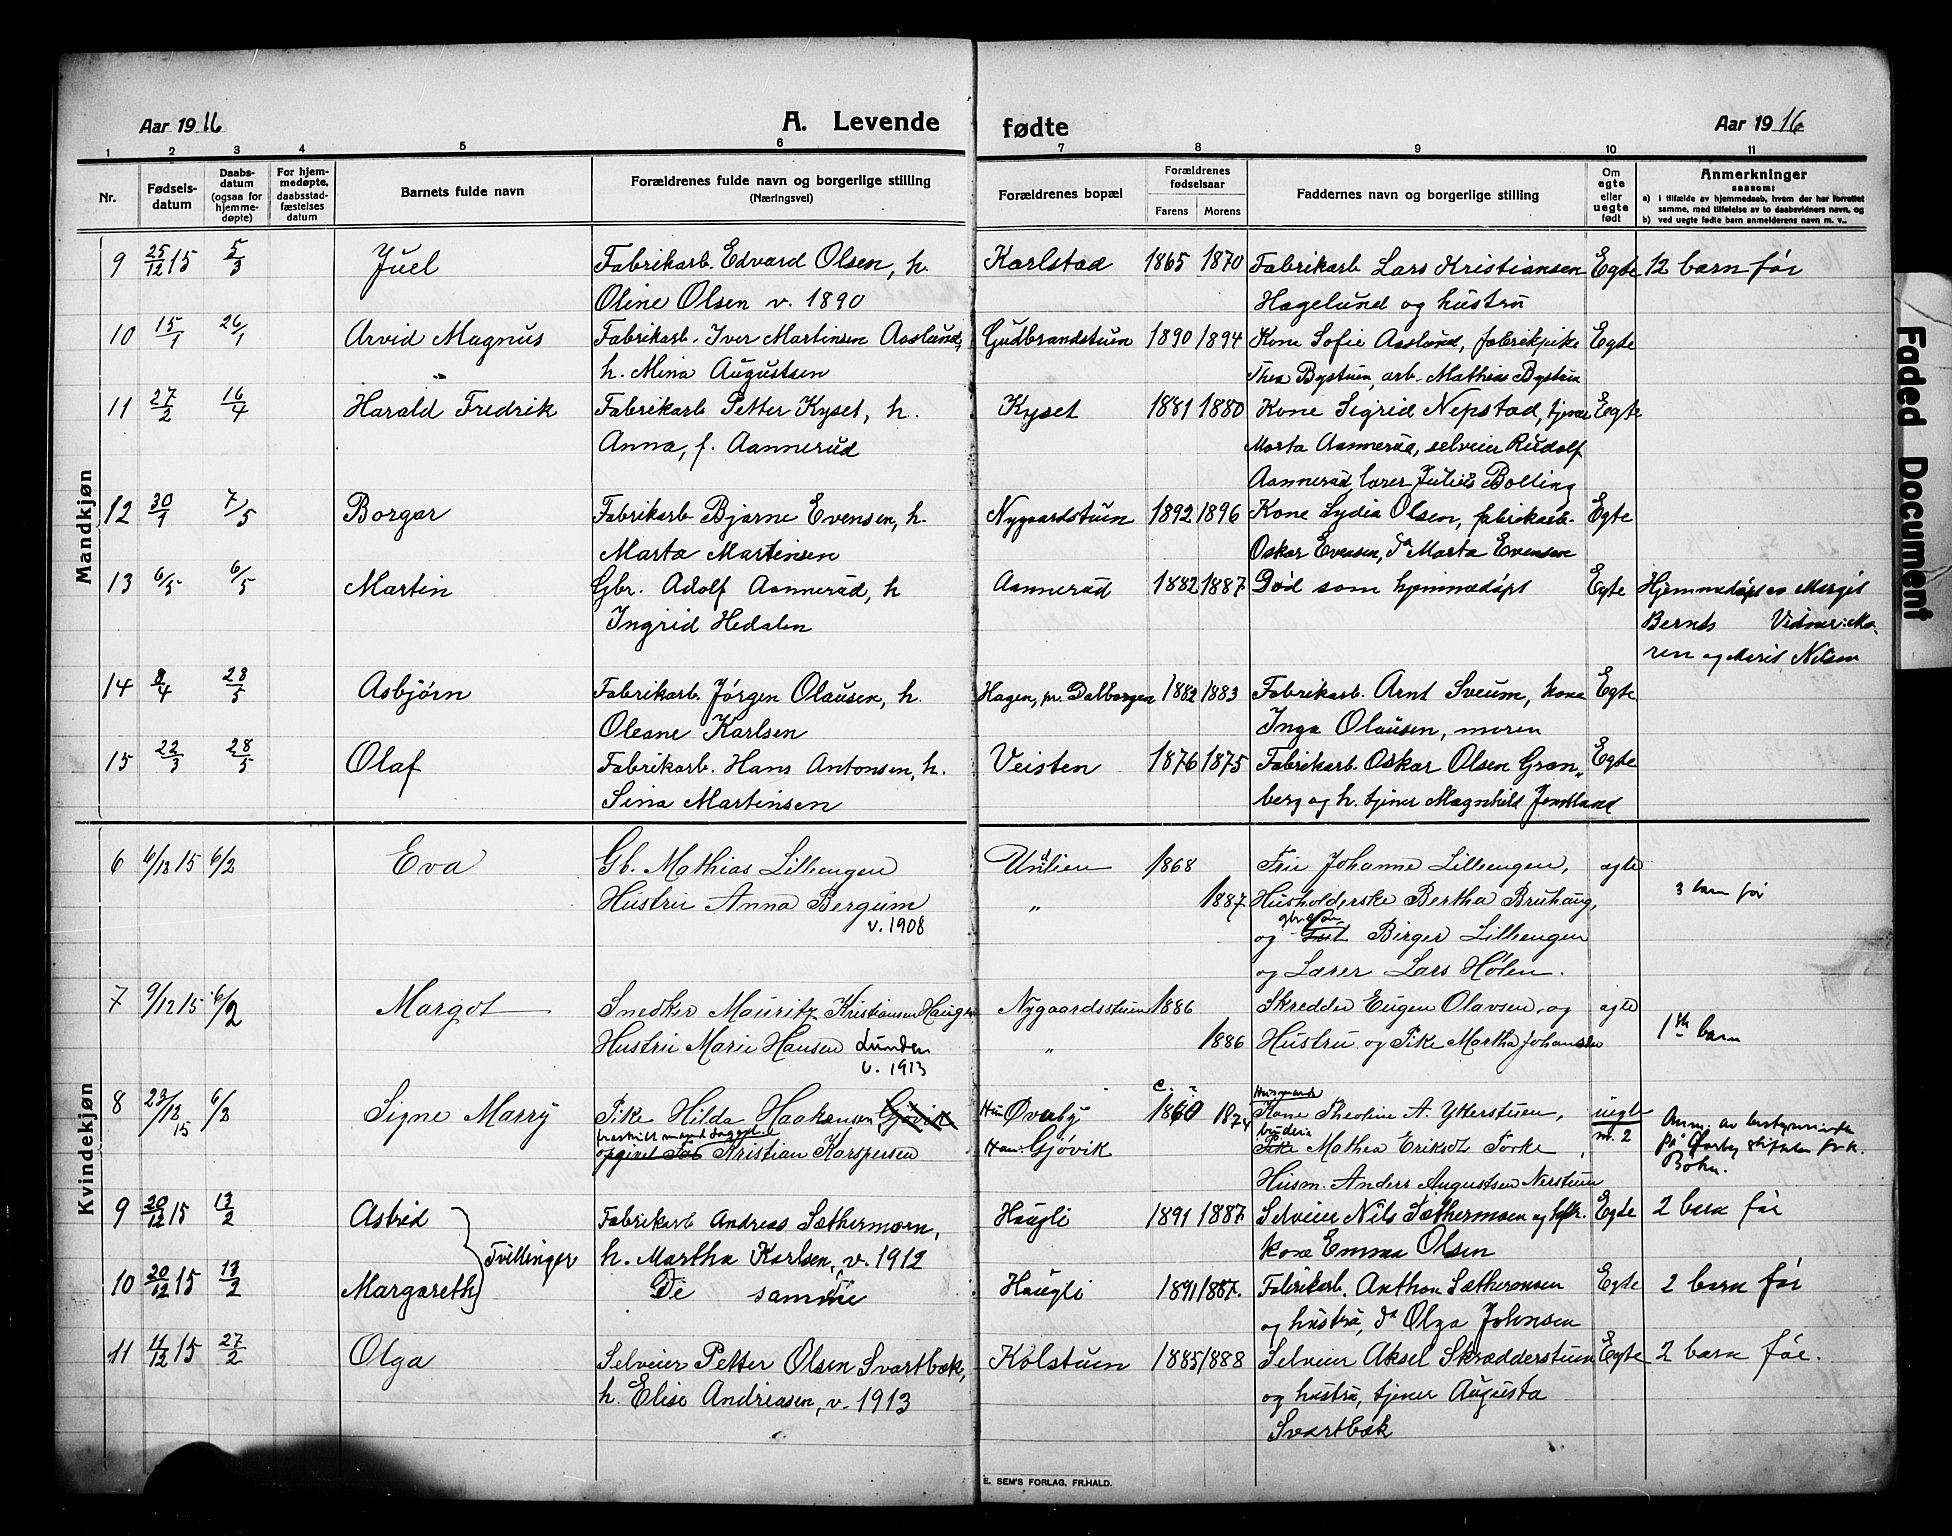 Aar 1916
A. Levende fødte
Aar 1916
1 2 3 4 5 6 7 8 9 10 11
Nr.
Fødsels-
datum
Daabs-
datum
(ogsaa for
hjemme-
døpte)
For hjem-
medøpte,
daabsstad-
fæstelses
datum
Barnets fulde navn
Forældrenes fulde navn og borgerlige stilling
(Næringsvei)
Forældrenes bopæl
Forældrenes
fødselsaar
Farens Morens
Faddernes navn og borgerlige stilling
Om
egte
eller
uegte
født
Anmerkninger
saasom:
a) i tilfælde av hjemmedaab, hvem der har forrettet
samme, med tilføielse av to daabsvidners navn, og
b) ved uegte fødte barn anmelderens navn m. v..
Mandkjøn
9 25/12 15 5/3 Juel Fabrikarb. Edvard Olsen, h. Karlstad 1865 1870 Fabrikarb Lars Kristiansen Egte 12 barn før
Oline Olsen v. 1890 Hagelund og hustru
10 15/1 26/1 Arvid Magnus Fabrikarb. Iver Martinsen Aaslund, Gudbrandstuen 1890 1894 Kone Sofie Aaslund, fabrikpike Egte
h. Mina Augustsen Thea Bystuen, arb. Mathias Bystuen
11 27/2 16/4 Harald Fredrik Fabrikarb Petter Kyset, h. Kyset 1881 1880 Kone Sigrid Nepstad, tjener Egte
Anna, f. Aannerud Marta Aannerud, selveier Rudolf
Aannerud, lærer Julius Bolling
12 30/1 7/5 Borgar Fabrikarb Bjarne Evensen, h. Nygaardstuen 1892 1896 Kone Lydia Olsen, fabrikarb. Egte
Marta Martinsen Oskar Evensen, do Marta Evensen
13 6/5 6/5 Martin Gbr. Adolf Aannerud, h Aannerud 1882 1887 Død som hjemmedøpt Egte Hjemmedøpt av Margit
Ingrid Hedalen Bernts Vidner: Ma-
ren og Marit Nilsen
14 8/4 28/5 Asbjørn Fabrikarb. Jørgen Olausen, h. Hagen, pr. Dalborgen 1882 1883 Fabrikarb. Arnt Sveum, kone Egte
Oleane Karlsen Inga Olausen, moren
15 22/3 28/5 Olaf Fabrikarb. Hans Antonsen, h. Veisten 1876 1875 Fabrikarb. Oskar Olsen Gran- Egte
Sina Martinsen berg og h. tjener Magnhild
Kvindekjøn
6 6/12 15 6/2 Eva Gb. Mathias Lillengen 1868 Fru Johanne Lillengen, egte
Hustru Anna Bergum " 1887 Husholderske Bertha Bruhaug, 3 barn før
v. 1908
og Birger Lillengen
og Lærer Lars Holen.
7 9/12 15 6/2 Margot Snedker Mauritz Kristiansen Haugen Nygaardsstuen 1886 Skredder Eugen Olavsen, og egte
Hustru Marie Hansen Lunden " 1886 Hustru og Pike Martha Johansen 1ste barn
v. 1913
8 23/12 15 6/3 Signe Marry Pike Hilda Haakensen Gjøvik Hun Øverby c. 1860 1874 Kone Theoline A. Ytterstuen, uegte
fraskilt mand
opgivet Kristian Kaspersen Han: Gjøvik budeia Pike Mathea Eriksdt Torke nr. 2
Husm. Anders Augustsen Nerstuen
9 20/12 15 13/2 Astrid Fabrikarb Andreas Sæthermoen, Haugli 1891 1887 Selveier Nils Sæthermoen og hstr. Egte 2 barn før
Tvillinger h. Martha Karlsen, v. 1912 kone Emma Olsen
10 20/12 15 13/2 Margareth De samme Haugli 1891 1887. Fabrikarb. Anthon Sætheronsen Egte 2 barn før
og hustru, do Olga Johnsen
11 11/12 15 27/2 Olga Selveier Petter Olsen Svartbæk, Kolstuen 1885 1888 Selveier Aksel Skrædderstuen Egte 2 barn før.
h. Elise Andreasen, v. 1913 og hustru, tjener Augusta
Svartbæk
E. SEM'S FORLAG, FR.HALD.
Faded Document